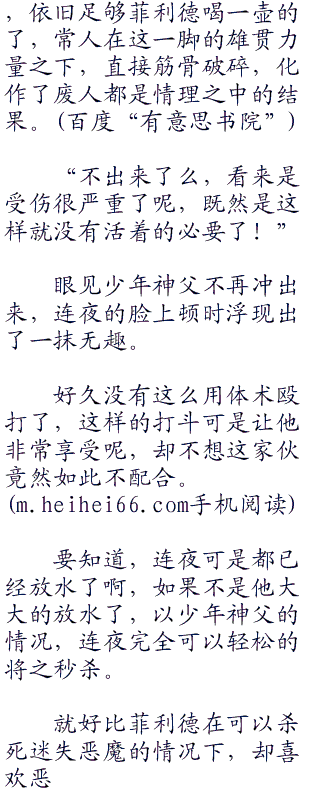 ，依旧足够菲利德喝一壶的
了，常人在这一脚的雄贯力
量之下，直接筋骨破碎，化
作了废人都是情理之中的结
果。(百度“有意思书院”)
“不出来了么，看来是
受伤很严重了呢，既然是这
样就没有活着的必要了！”
眼见少年神父不再冲出
来，连夜的脸上顿时浮现出
了一抹无趣。
好久没有这么用体术殴
打了，这样的打斗可是让他
非常享受呢，却不想这家伙
竟然如此不配合。
(m.heihei66.com手机阅读)
要知道，连夜可是都已
经放水了啊，如果不是他大
大的放水了，以少年神父的
情况，连夜完全可以轻松的
将之秒杀。
就好比菲利德在可以杀
死迷失恶魔的情况下，却喜
欢恶